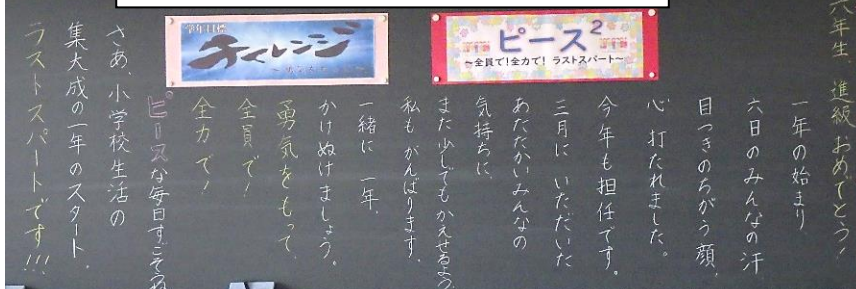 六年生、進級おめでとう!
一年の始まり
六日のみんなの汗
目つきのちがう顔、
心打たれました。
今年も担任です。
三月にいただいた
あたたかいみんなの
気持ちに、
また少しでもかえせるよう
私もがんばります。
一緒に一年、
かけぬけましょう。
勇気をもって、
全員で!
全力で!
ピースな毎日すごそうね
さあ、小学校生活の
集大成の一年のスタート。
ラストスパートです!!!
ピース2
~全員で!全力で! ラストスパート~
学年目標
チャレンジ